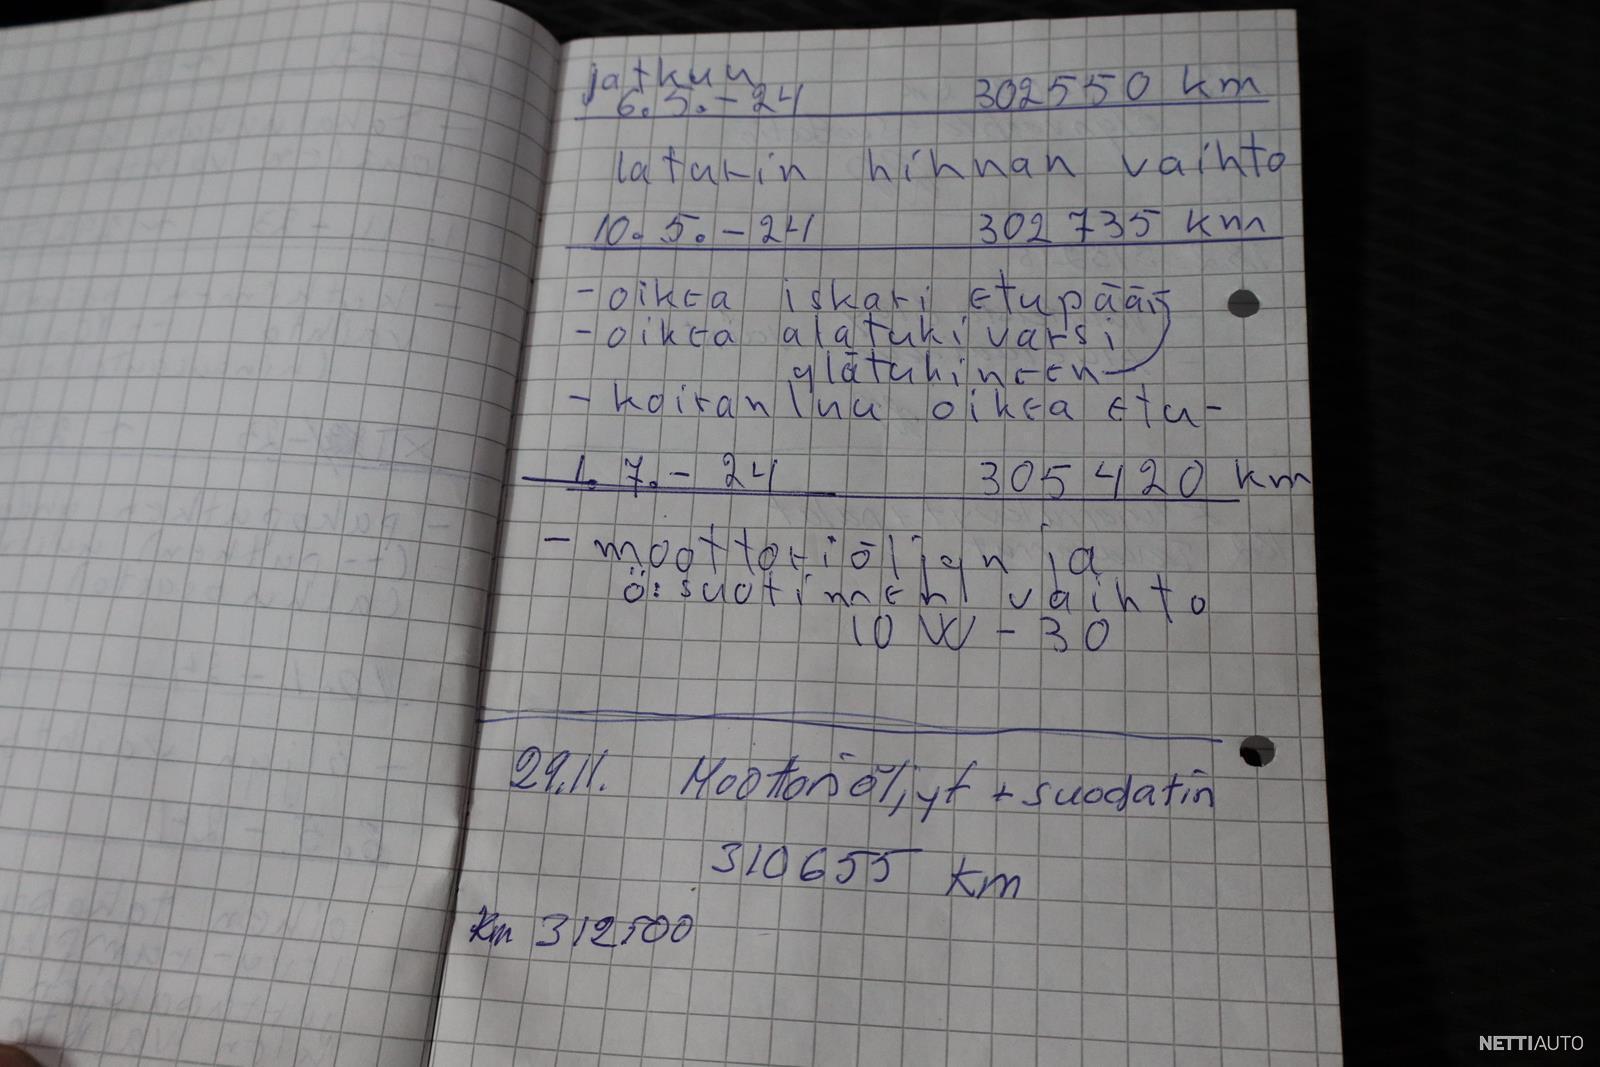 jatkuu
6.5.-24 302550 km
laturin hihnan vaihto
10.5.-24 302735 km
- oikea iskari etupään
- oikea alatukivarsi
ylätukineen
- koiranluu oikea etu-
1.7.-24 305420 km
- moottoriöljyn ja
ö:suotimen vaihto
10W-30
29.11. Moottoriöljyt + suodatin
310655 km
Km 312500
NETTIAUTO